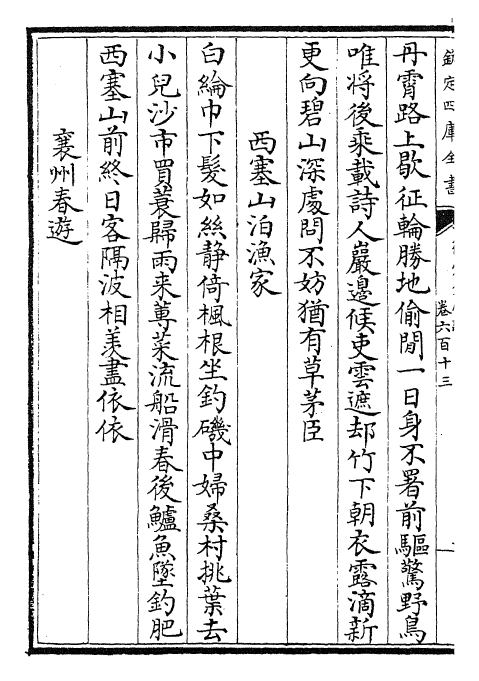 欽定四庫全書
卷六百十三
丹霄路上歇征輪勝地偷閒一日身不署前驅驚野鳥
唯将後乘載詩人巖邊候吏雲遮却竹下朝衣露滴新
更向碧山深處問不妨猶有草茅臣
西塞山泊漁家
白綸巾下髮如絲静倚楓根坐釣磯中婦桑村挑葉去
小兒沙市買蓑歸雨来蓴菜流船滑春後鱸魚墜釣肥
西塞山前終日客隔波相羡盡依依
襄州春遊